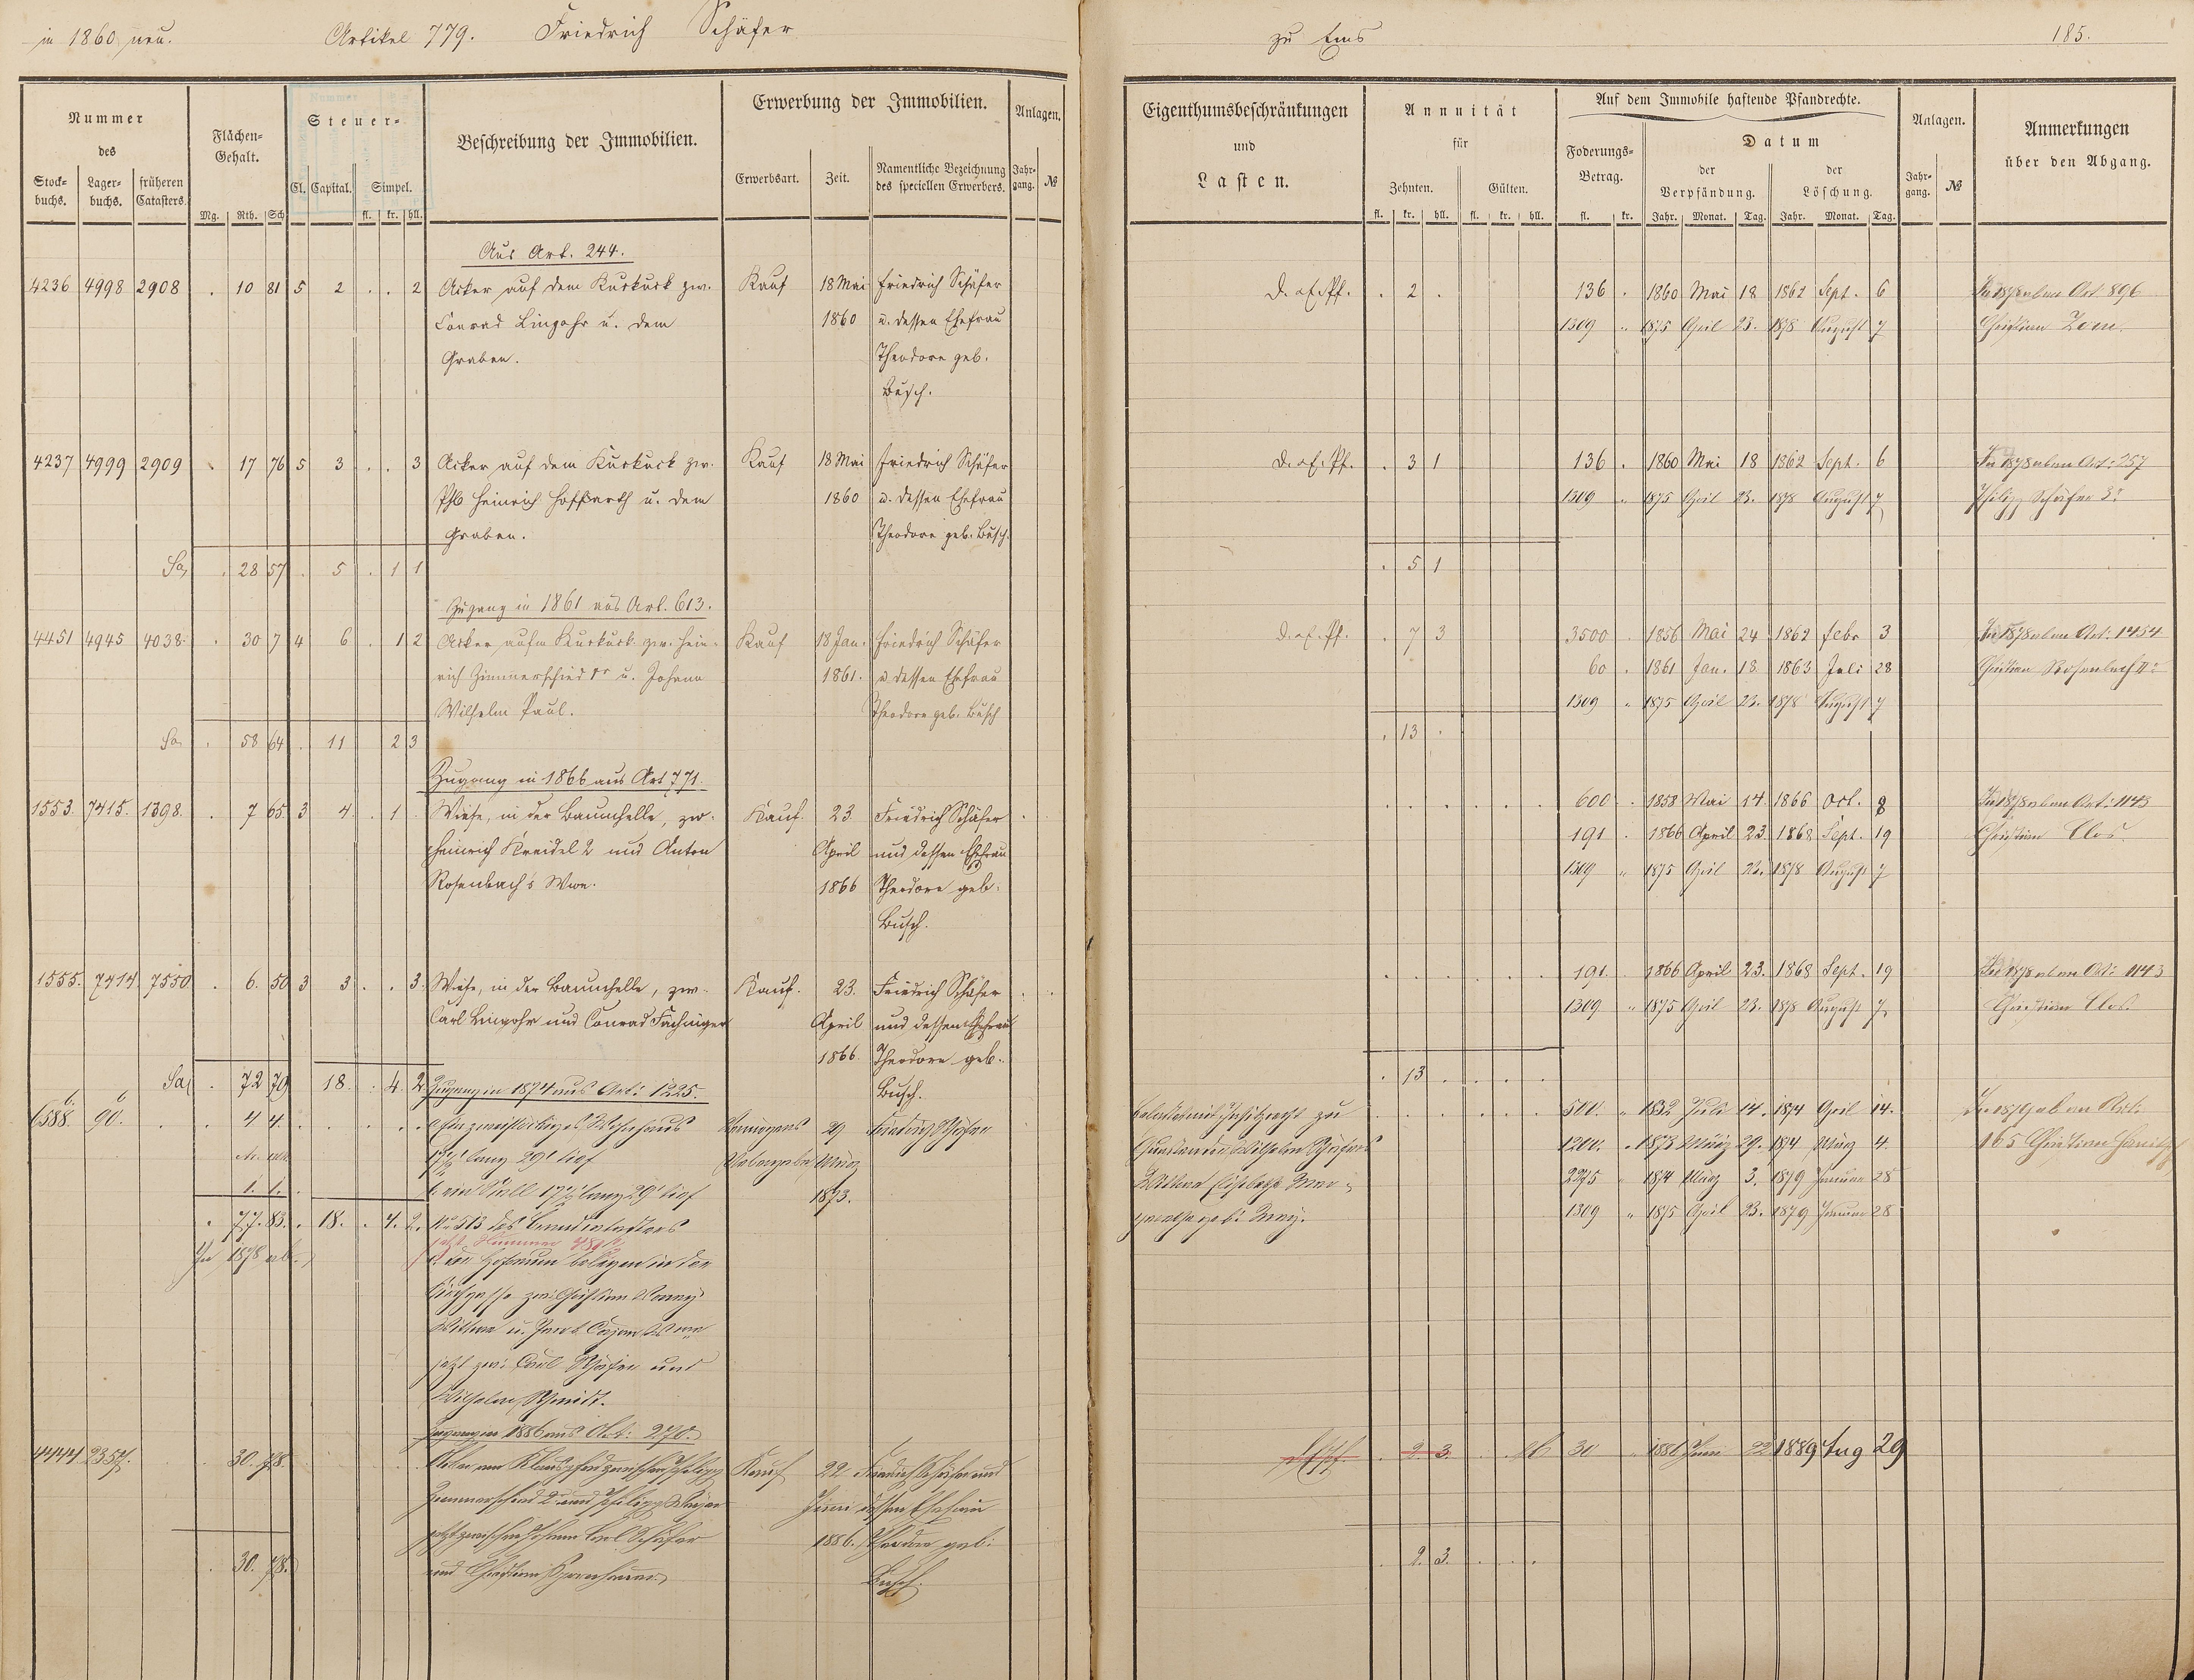 in 1860 neu. Artikel 779. Friedrich Schäfer zu Ems 185.
Nummer des
Stock-buchs. Lager-buchs. früheren Catasters.
Flächen-Gehalt.
Mg. Rth. Sch
Steuer-
Cl. Capital. Simpel.
fl. kr. hll.
Beschreibung der Immobilien.
Erwerbung der Immobilien.
Erwerbsart. Zeit. Namentliche Bezeichnung des speciellen Erwerbers.
Anlagen.
Jahr-gang. №
Eigenthumsbeschränkungen
und
Lasten.
Annuität
für
Zehnten. Gülten.
fl. kr. hll. fl. kr. hll.
Auf dem Immobile haftende Pfandrechte.
Foderungs-Betrag.
fl. kr.
Datum
der Verpfändung. der Löschung.
Jahr. Monat. Tag. Jahr. Monat. Tag.
Anlagen.
Jahr-gang. №
Anmerkungen
über den Abgang.
Aus Art. 244.
4236 4998 2908 . 10 81 5 2 . . 2 Acker auf dem Kukuck zw. Kauf 18 Mai Friedrich Schäfer . 2 . 136 . 1860 Mai 18 1862 Sept. 6 In 1878 Art. 896
Conrad Linzohr u. dem 1860 u. dessen Ehefrau 1309 " 1875 April 23. 1878 August 7 Christian Zorn.
Graben. Theodore geb.
Busch.
4237 4999 2909 . 17 76 5 3 . . 3 Acker auf dem Kukuck zw. Kauf 18 Mai Friedrich Schäfer . 3 1 136 . 1860 Mai 18 1862 Sept. 6 In 1878 Art: 257
Heinrich Hoffarth u. dem 1860 u. dessen Ehefrau 1309 " 1875 April 23. 1878 August 7 Philipp Schäfer 3r
Graben. Theodore geb. Busch.
Sa . 28 57 . 5 . 1 1 . 5 1
Zugang in 1861 aus Art. 613.
4451 4945 4038 . 30 7 4 6 . 1 2 Acker aufm Kukuck zw. Hein- Kauf 18 Jan. Friedrich Schäfer . 7 3 3500 . 1856 Mai 24 1862 Febr 3 In 1878 Art: 1454
rich Zimmerschied u. Johann 1861. u dessen Ehefrau 60 . 1861 Jan. 18 1863 Juli 28 Christian Rosenbach
Wilhelm Paul. Theodore geb. Busch 1309 " 1875 April 23. 1878 August 7
Sa . 58 64 . 11 2 3 . 13 .
Zugang in 1866 aus Art 771.
1553. 7415. 1398. . 7 65 3 4. . 1 Wiese, in der Baumhelle, zw. Kauf. 23. Friedrich Schäfer 600 . 1858 Mai 14. 1866 Oct. 8 In 1878 Art: 1143
Heinrich Kreidel 2 und Anton April und dessen Ehefrau 191 . 1866 April 23. 1868 Sept. 19 Christian Clos.
Rosenbach's Wwe. 1866 Theodore geb. 1309 " 1875 April 23. 1878 August 7
Busch.
1555. 7414. 7550 . 6. 50 3 3 . . 3. Wiese, in der Baumhelle, zw. Kauf. 23. Friedrich Schäfer 191. 1866 April 23. 1868 Sept. 19 In 1878 Art: 1143
Carl Linzohr und Conrad Fachinger April und dessen Ehefrau 1309 " 1875 April 23. 1878 August 7. Christian Clos.
1866. Theodore geb.
Busch.
Sa . 72 79 18. . 4. 2 Zugang in 1874 aus Art: 1225. . 13
6588. 90. . 4 4. Ein zweistöckiges Wohnhaus 29 Friedrich Schäfer 500. " 1832 Juli 14. 1874 April 14. In 1879 Art.
lang 29' tief März 1200. " 1873 März 29. 1874 März 4. 165 Christian
1. 1. ein Stall lang 29' tief 1873. 2275 " 1874 März 3. 1879 Januar 28
. 77. 83. . 18. . 4. 2. No 513 des 1309 " 1875 April 23. 1879 Januar 28
In 1878 ab. jetzt Nummer
der Hofraum belegen in der
Kirchgasse zw: Christian
Wittwe u. Jacob
jetzt zw: Carl Schäfer und
Wilhelm Schmidt.
Zugang in 1886 aus Art: 270.
4444 2357. 30. 78. Acker zwischen Philipp Kauf 22. Friedrich Schäfer und . 2. 3. 30 " 1881 Juni 22 1889 Aug 29
Zimmerschied 2r und Philipp Juni dessen Ehefrau
jetzt zwischen Johann Carl Schäfer 1886. Theodore geb:
und Christian Busch.
. 30. 78. . 2. 3.